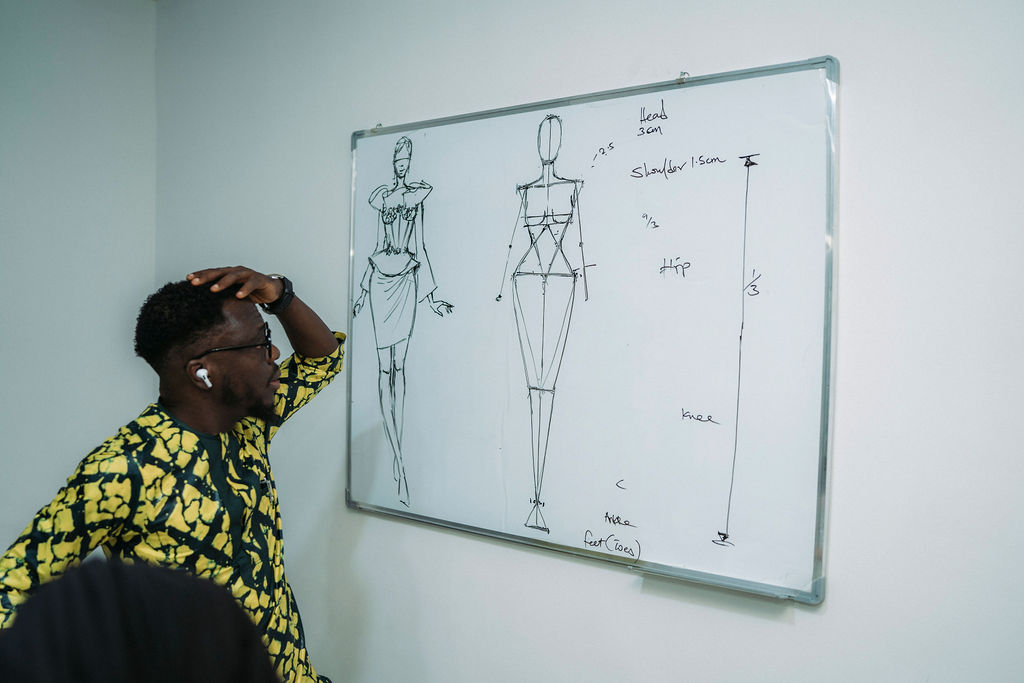 Head
3cm
2.5
Shoulder 1.5cm
Hip
1/3
Knee
C
Ankle
feet (Toes)